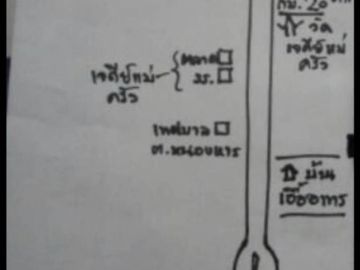 กม. 20
วัด
เจดีย์แม่
ครัว
ตลาด
รร.
เจดีย์แม่
ครัว
เทศบาล
ต.หนองหาร
บ้าน
เอื้ออาทร